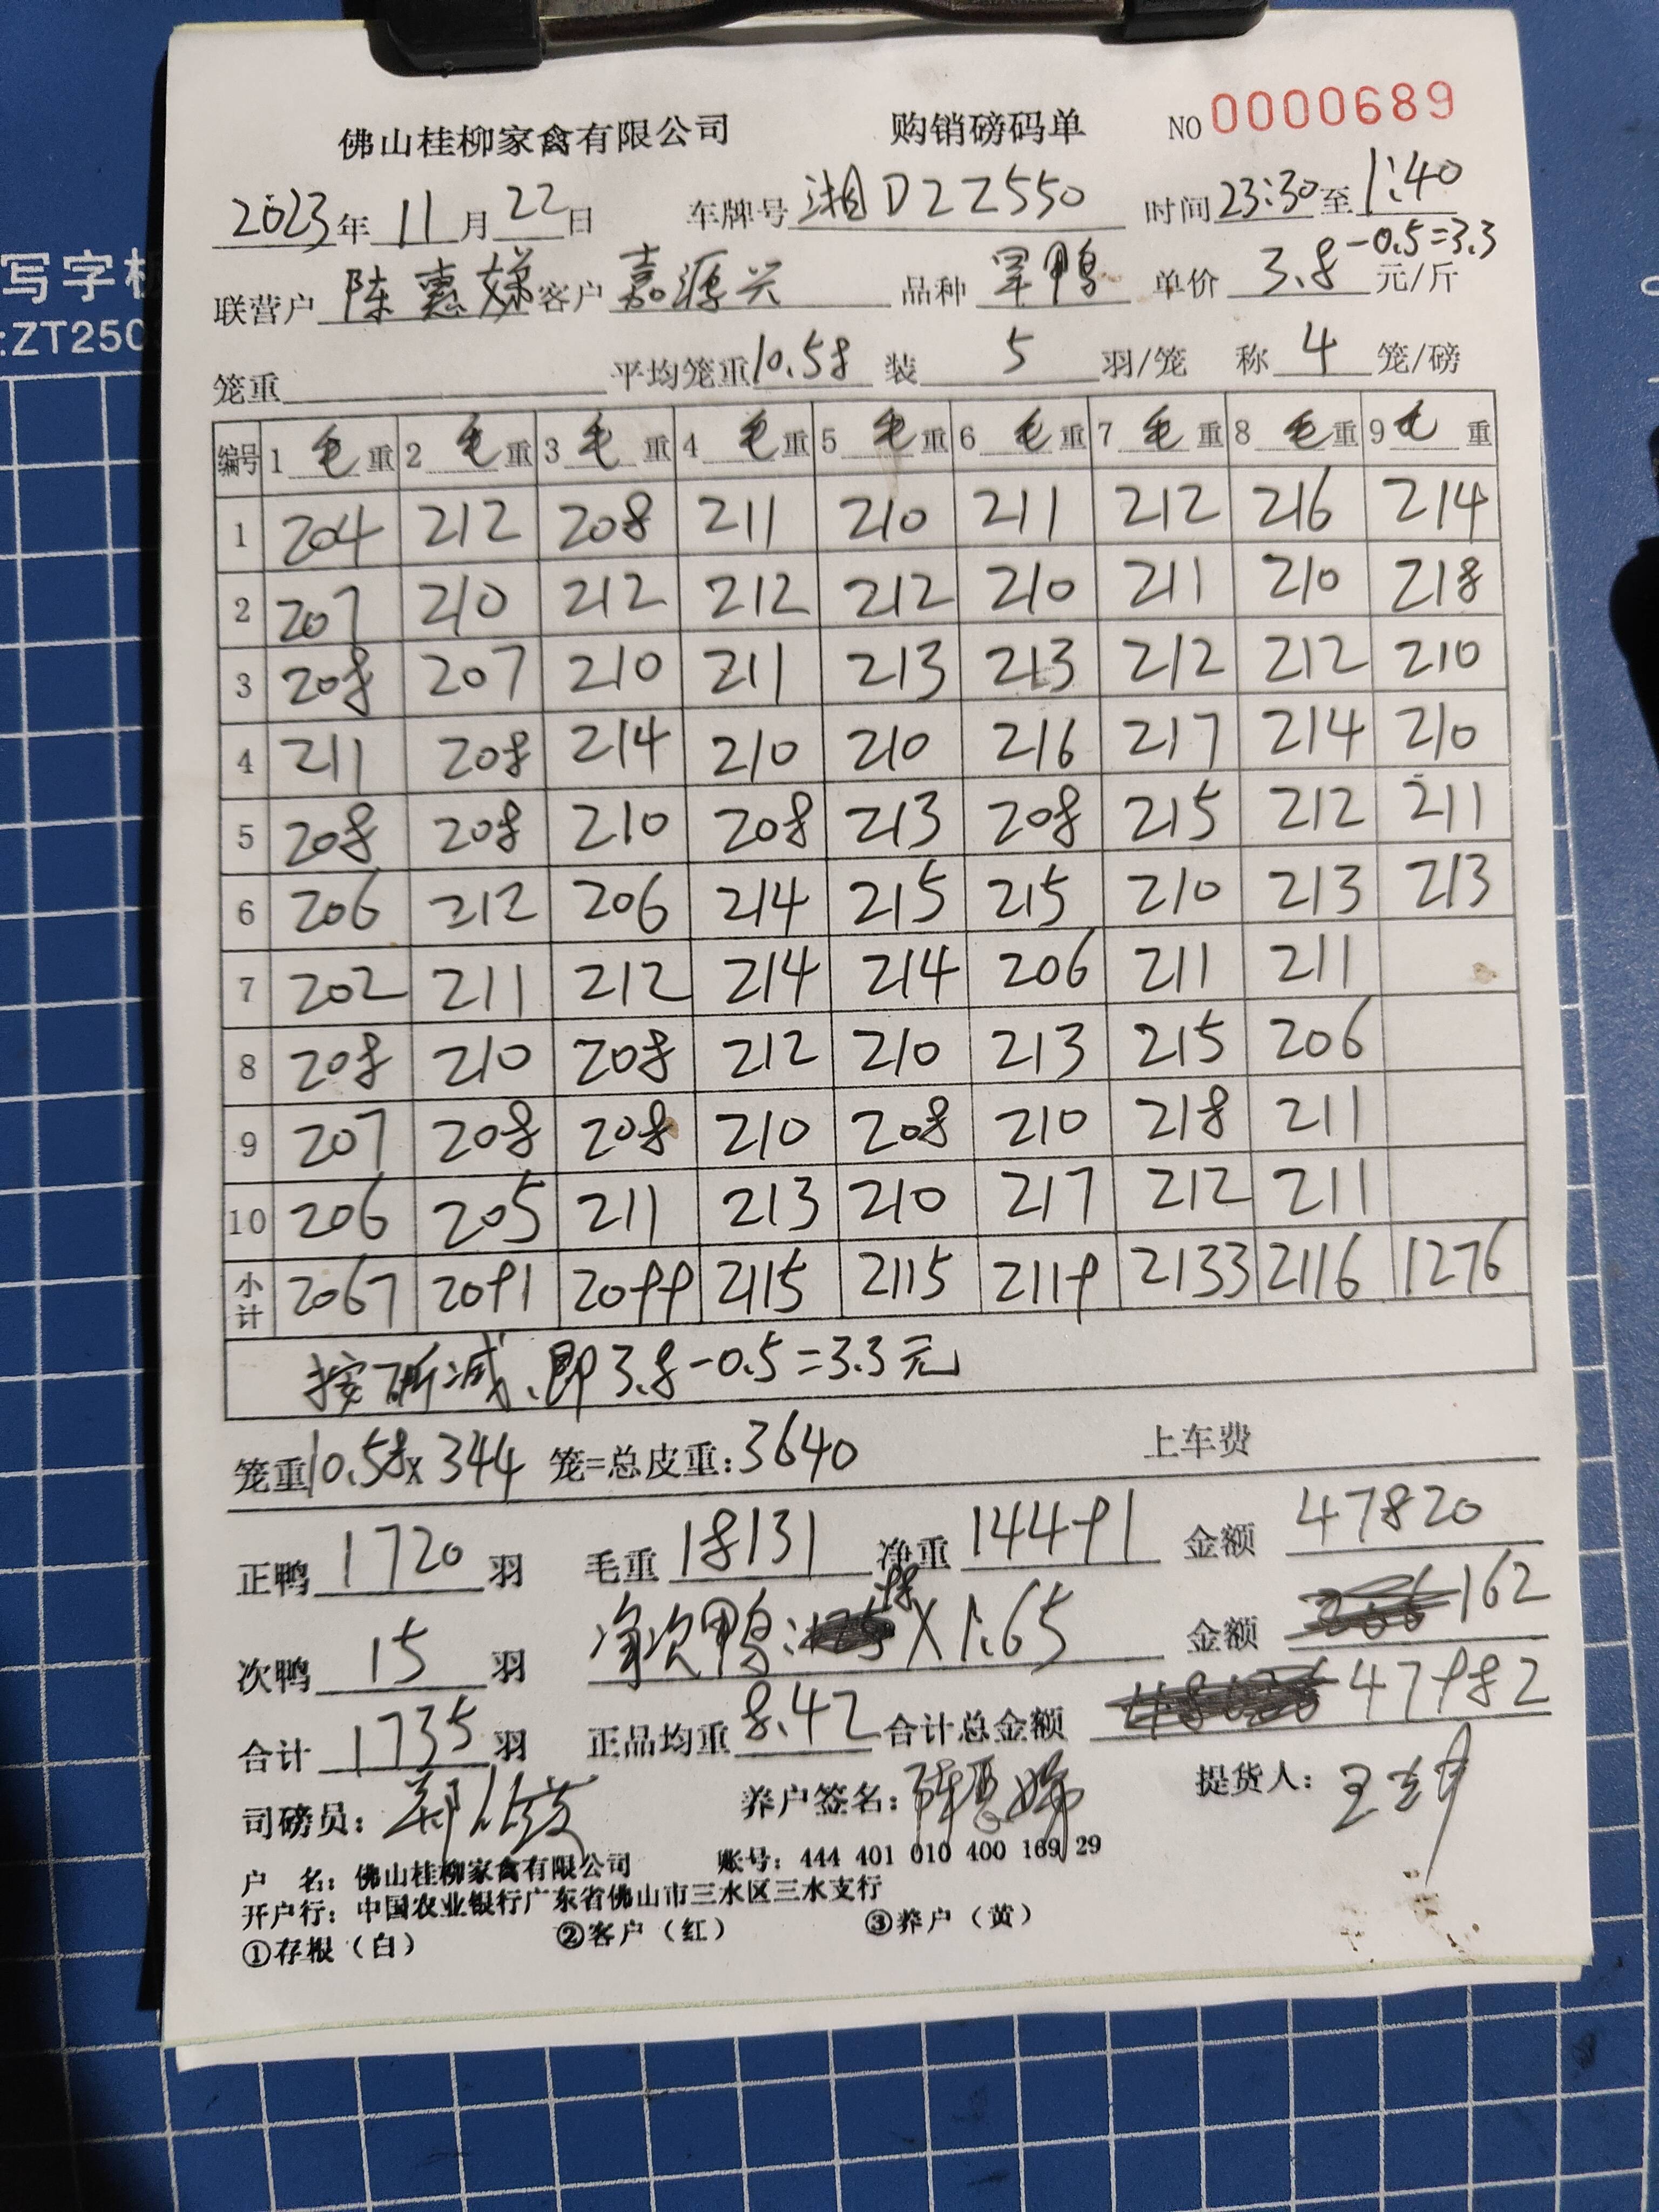 佛山桂柳家禽有限公司 购销磅码单 NO 0000689
2023年 11月 22日 车牌号 湘D2Z550 时间 23:30 至 1:40
联营户 陈惠娣 客户 嘉源兴 品种 旱鸭 单价 3.8-0.5=3.3 元/斤
笼重 平均笼重 10.58 装 5 羽/笼 称 4 笼/磅
编号 1 毛重 2 毛重 3 毛重 4 毛重 5 毛重 6 毛重 7 毛重 8 毛重 9 毛重
1 204 212 208 211 210 211 212 216 214
2 207 210 212 212 212 210 211 210 218
3 208 207 210 211 213 213 212 212 210
4 211 208 214 210 210 216 217 214 210
5 208 208 210 208 213 208 215 212 211
6 206 212 206 214 215 215 210 213 213
7 202 211 212 214 214 206 211 211
8 208 210 208 212 210 213 215 206
9 207 208 208 210 208 210 218 211
10 206 205 211 213 210 217 212 211
小计 2067 2091 2099 2115 2115 2119 2133 2116 1276
按斫减、即3.8-0.5=3.3元
笼重 10.58 x 344 笼=总皮重: 3640 上车费
正鸭 1720 羽 毛重 18131 净重 14491 金额 47820
次鸭 15 羽 净次鸭: 98 X 1.65 金额 162
合计 1735 羽 正品均重 8.42 合计总金额 47982
司磅员: 养户签名: 陈惠娣 提货人:
户 名: 佛山桂柳家禽有限公司 账号: 444 401 010 400 169 29
开户行: 中国农业银行广东省佛山市三水区三水支行
①存根（白） ②客户（红） ③养户（黄）
ZT250